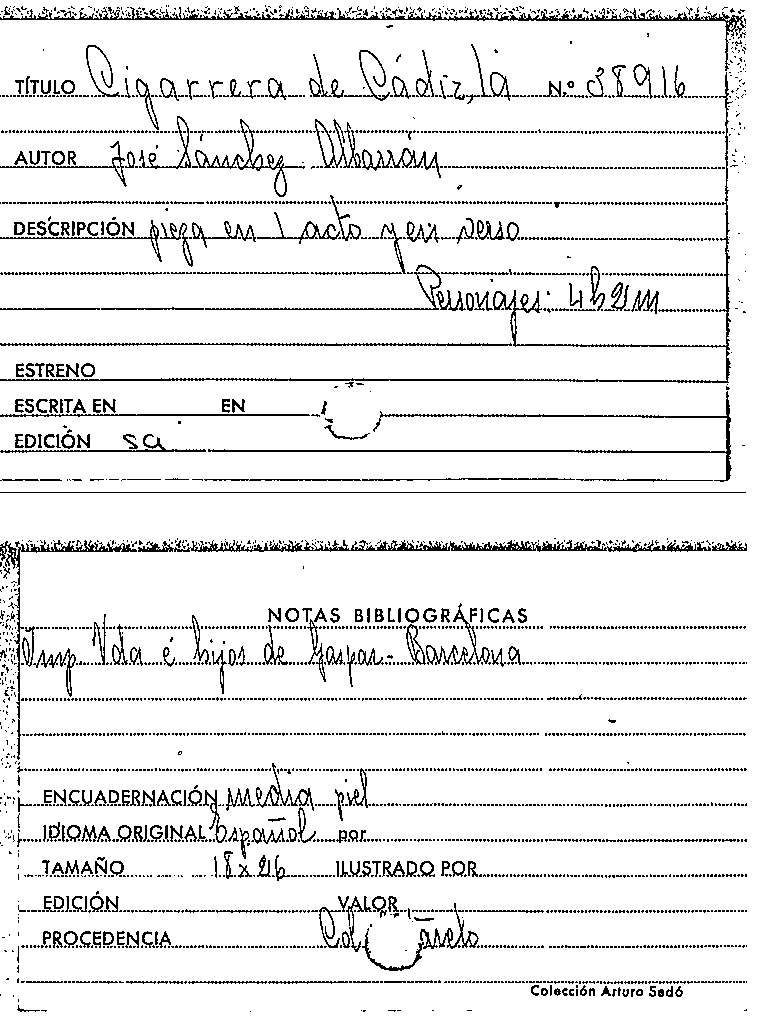 TÍTULO Cigarrera de Cádiz, la N.º 38916
AUTOR José Sánchez Albarrán
DESCRIPCIÓN pieza en 1 acto y en verso
Personajes: 4h 2m
ESTRENO
ESCRITA EN EN
EDICIÓN sa
NOTAS BIBLIOGRÁFICAS
Imp. Vda é hijos de Gaspar - Barcelona
ENCUADERNACIÓN media piel
IDIOMA ORIGINAL Español por
TAMAÑO 18 x 26 ILUSTRADO POR
EDICIÓN VALOR
PROCEDENCIA Col.
Colección Arturo Sedó